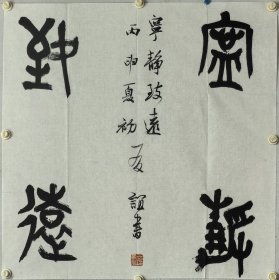 寧靜
致遠
寧靜致遠
丙申夏初
友誼書